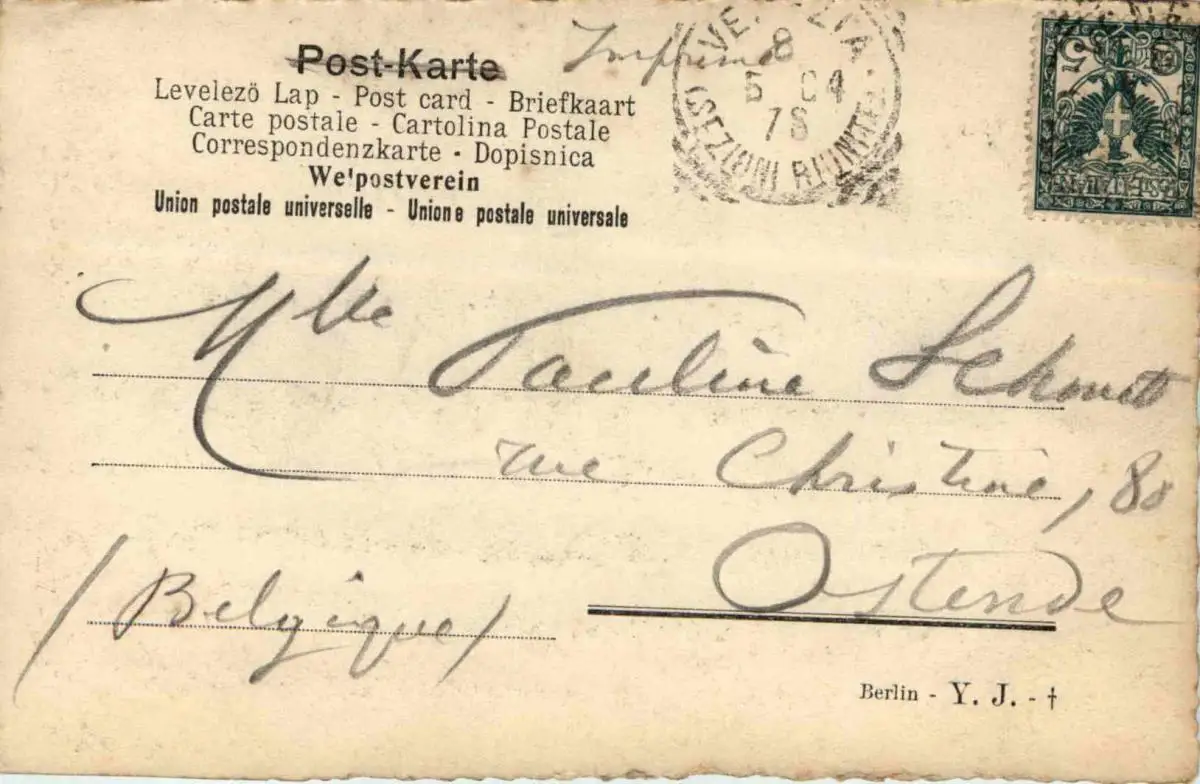 Post-Karte
Imprimé
Levelezö Lap - Post card - Briefkaart
Carte postale - Cartolina Postale
Correspondenzkarte - Dopisnica
We'postverein
Union postale universelle - Unione postale universale
VENEZIA
8
5 04
(SEZIONI RIUNITE)
5
Mlle Pauline Schmidt
rue Christine, 80
Ostende
(Belgique)
Berlin - Y. J. - †